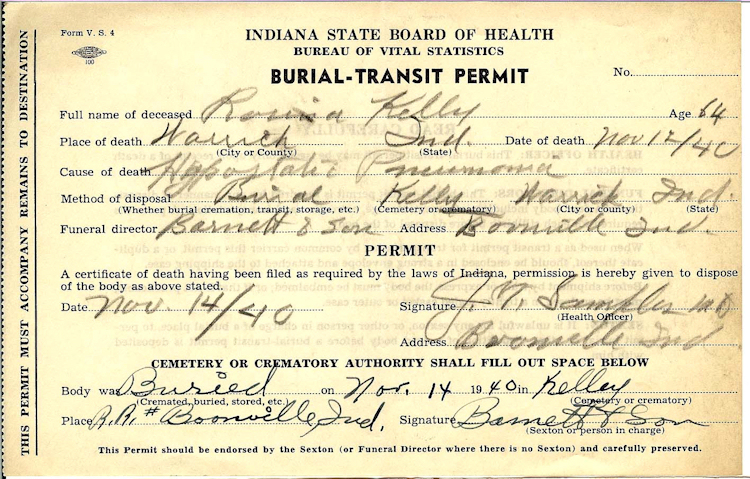 Form V. S. 4
100
INDIANA STATE BOARD OF HEALTH
BUREAU OF VITAL STATISTICS
BURIAL-TRANSIT PERMIT
No.
Full name of deceased Rosina Kelly Age 64
Place of death Warrick Ind. Date of death Nov 12/40
(City or County) (State)
Cause of death Hypostatic Pneumonia
Method of disposal Burial Kelly Warrick Ind.
(Whether burial cremation, transit, storage, etc.) (Cemetery or crematory) (City or county) (State)
Funeral director Barnett & Son Address Boonville Ind.
PERMIT
A certificate of death having been filed as required by the laws of Indiana, permission is hereby given to dispose
of the body as above stated.
Date Nov. 14/40 Signature J. T. Samples MD
(Health Officer)
Address Boonville Ind
CEMETERY OR CREMATORY AUTHORITY SHALL FILL OUT SPACE BELOW
Body was Buried on Nov. 14 1940 in Kelley
(Cremated, buried, stored, etc.) (Cemetery or crematory)
Place R.R. # Boonville, Ind. Signature Barnett & Son
(Sexton or person in charge)
This Permit should be endorsed by the Sexton (or Funeral Director where there is no Sexton) and carefully preserved.
THIS PERMIT MUST ACCOMPANY REMAINS TO DESTINATION